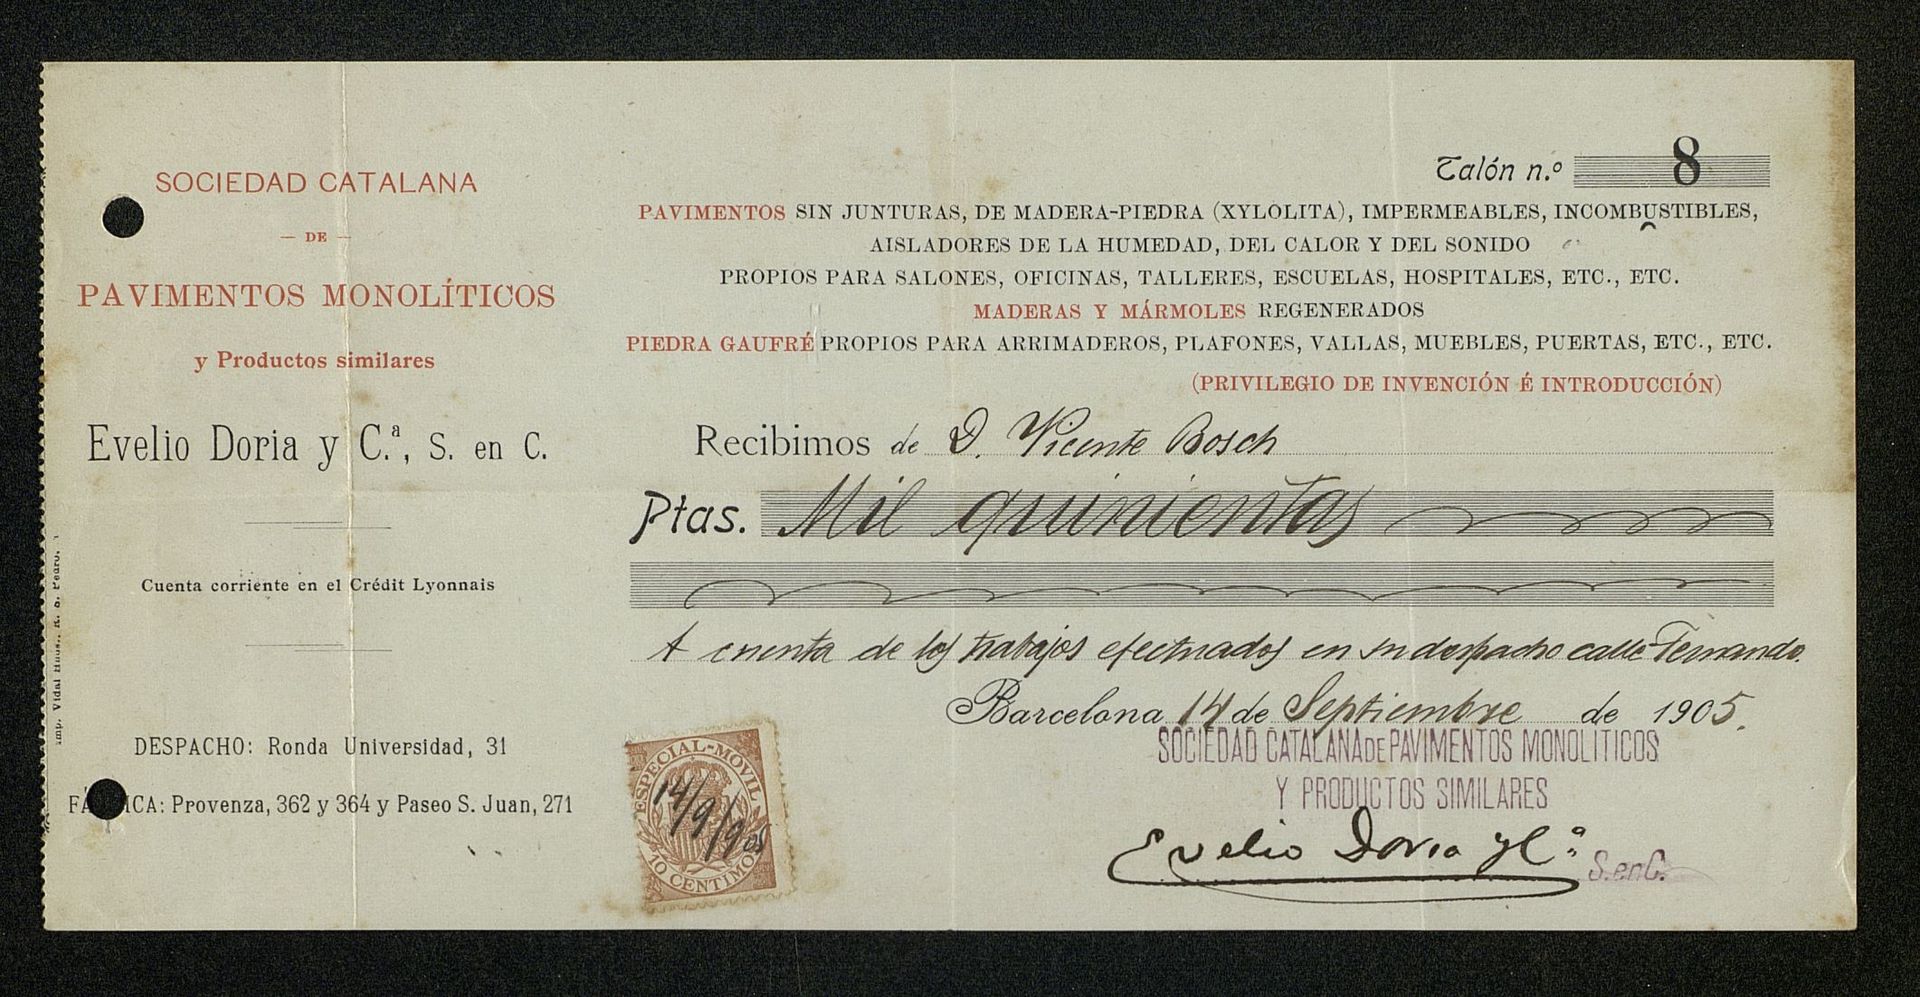 SOCIEDAD CATALANA
— DE —
PAVIMENTOS MONOLÍTICOS
y Productos similares
Evelio Doria y C.ª, S. en C.
Cuenta corriente en el Crédit Lyonnais
DESPACHO: Ronda Universidad, 31
FÁ ICA: Provenza, 362 y 364 y Paseo S. Juan, 271
Imp. Vidal Hnos., R. S. Pedro,
Talón n.º 8
PAVIMENTOS SIN JUNTURAS, DE MADERA-PIEDRA (XYLOLITA), IMPERMEABLES, INCOMBUSTIBLES,
AISLADORES DE LA HUMEDAD, DEL CALOR Y DEL SONIDO
PROPIOS PARA SALONES, OFICINAS, TALLERES, ESCUELAS, HOSPITALES, ETC., ETC.
MADERAS Y MÁRMOLES REGENERADOS
PIEDRA GAUFRÉ PROPIOS PARA ARRIMADEROS, PLAFONES, VALLAS, MUEBLES, PUERTAS, ETC., ETC.
(PRIVILEGIO DE INVENCIÓN É INTRODUCCIÓN)
Recibimos de D. Vicente Bosch
Ptas. Mil quinientas
A cuenta de los trabajos efectuados en su despacho calle Fernando.
Barcelona 14 de Septiembre de 1905.
SOCIEDAD CATALANA DE PAVIMENTOS MONOLITICOS
Y PRODUCTOS SIMILARES
Evelio Doria y Cª
S. en C.
ESPECIAL-MOVIL
14/9/905
10 CENTIMOS